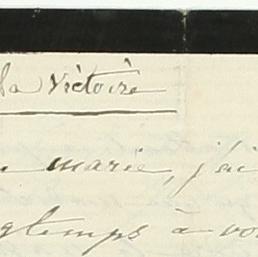 la Victoire
marie, j'ai
gtemps à vo